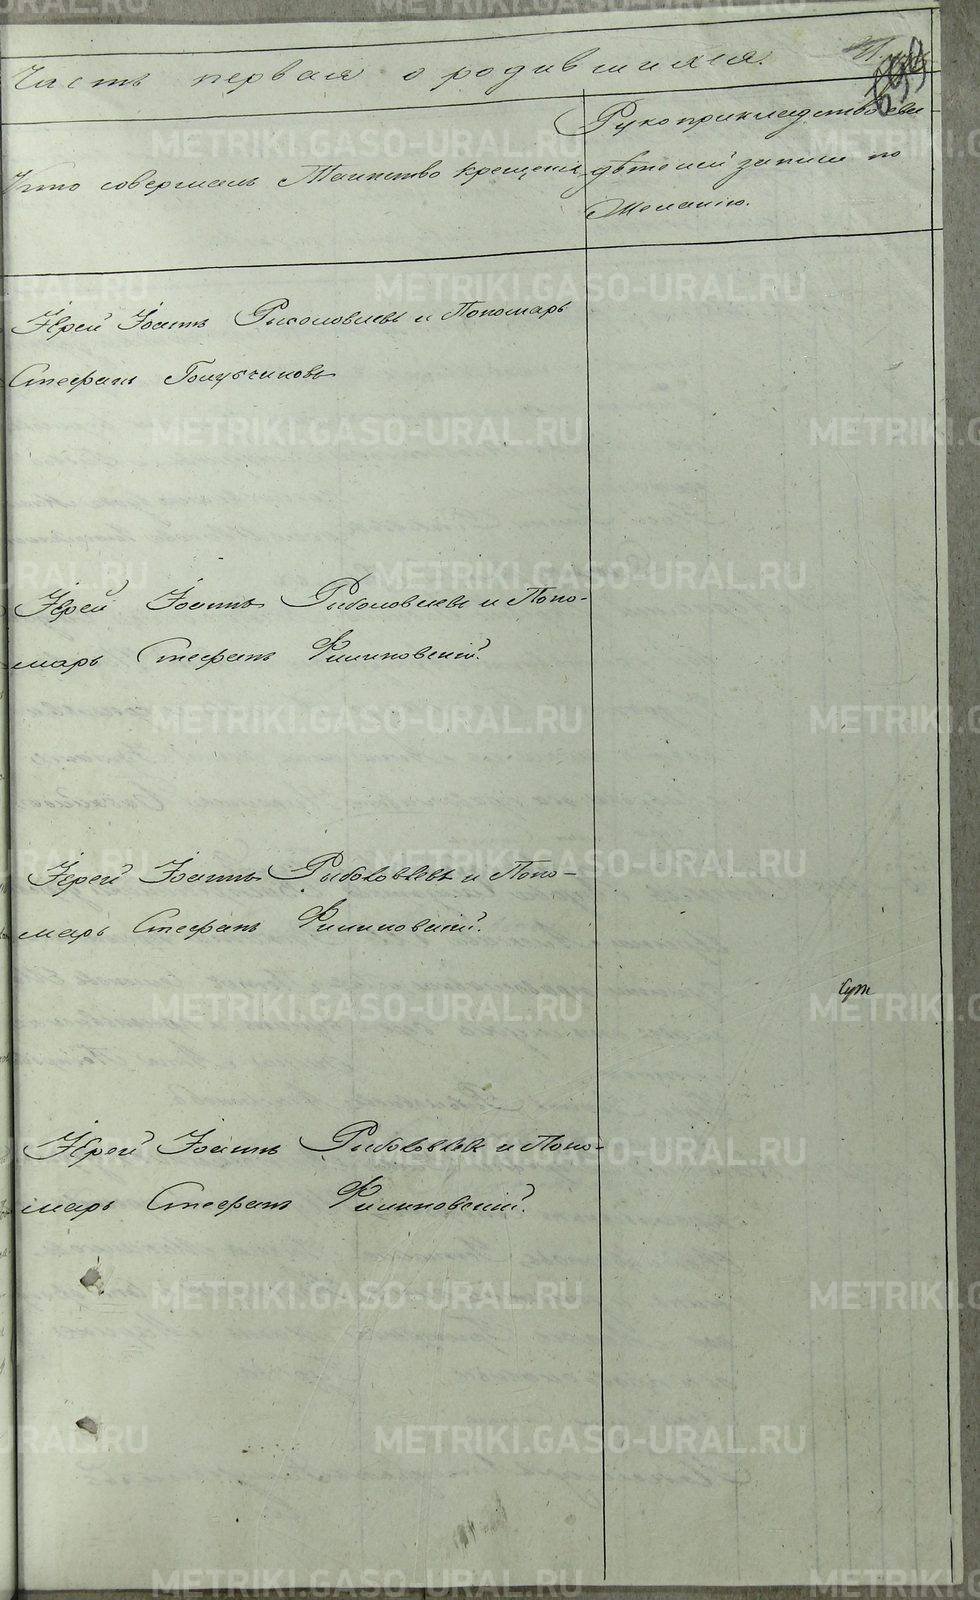 Часть первая о родившихся.
Кто совершалъ Таинство крещенія
Рукоприкладство сви-
дѣтелей записи по
желанію.
Іерей Іоаннъ Рыболовлевъ и Пономарь
Стефанъ
Іерей Іоаннъ Рыболовлевъ и Поно-
марь Стефанъ Филиповскій.
Іерей Іоаннъ Рыболовлевъ и Поно-
марь Стефанъ Филиповскій.
Іерей Іоаннъ Рыболовлевъ и Поно-
марь Стефанъ Филиповскій.
METRIKI.GASO-URAL.RU